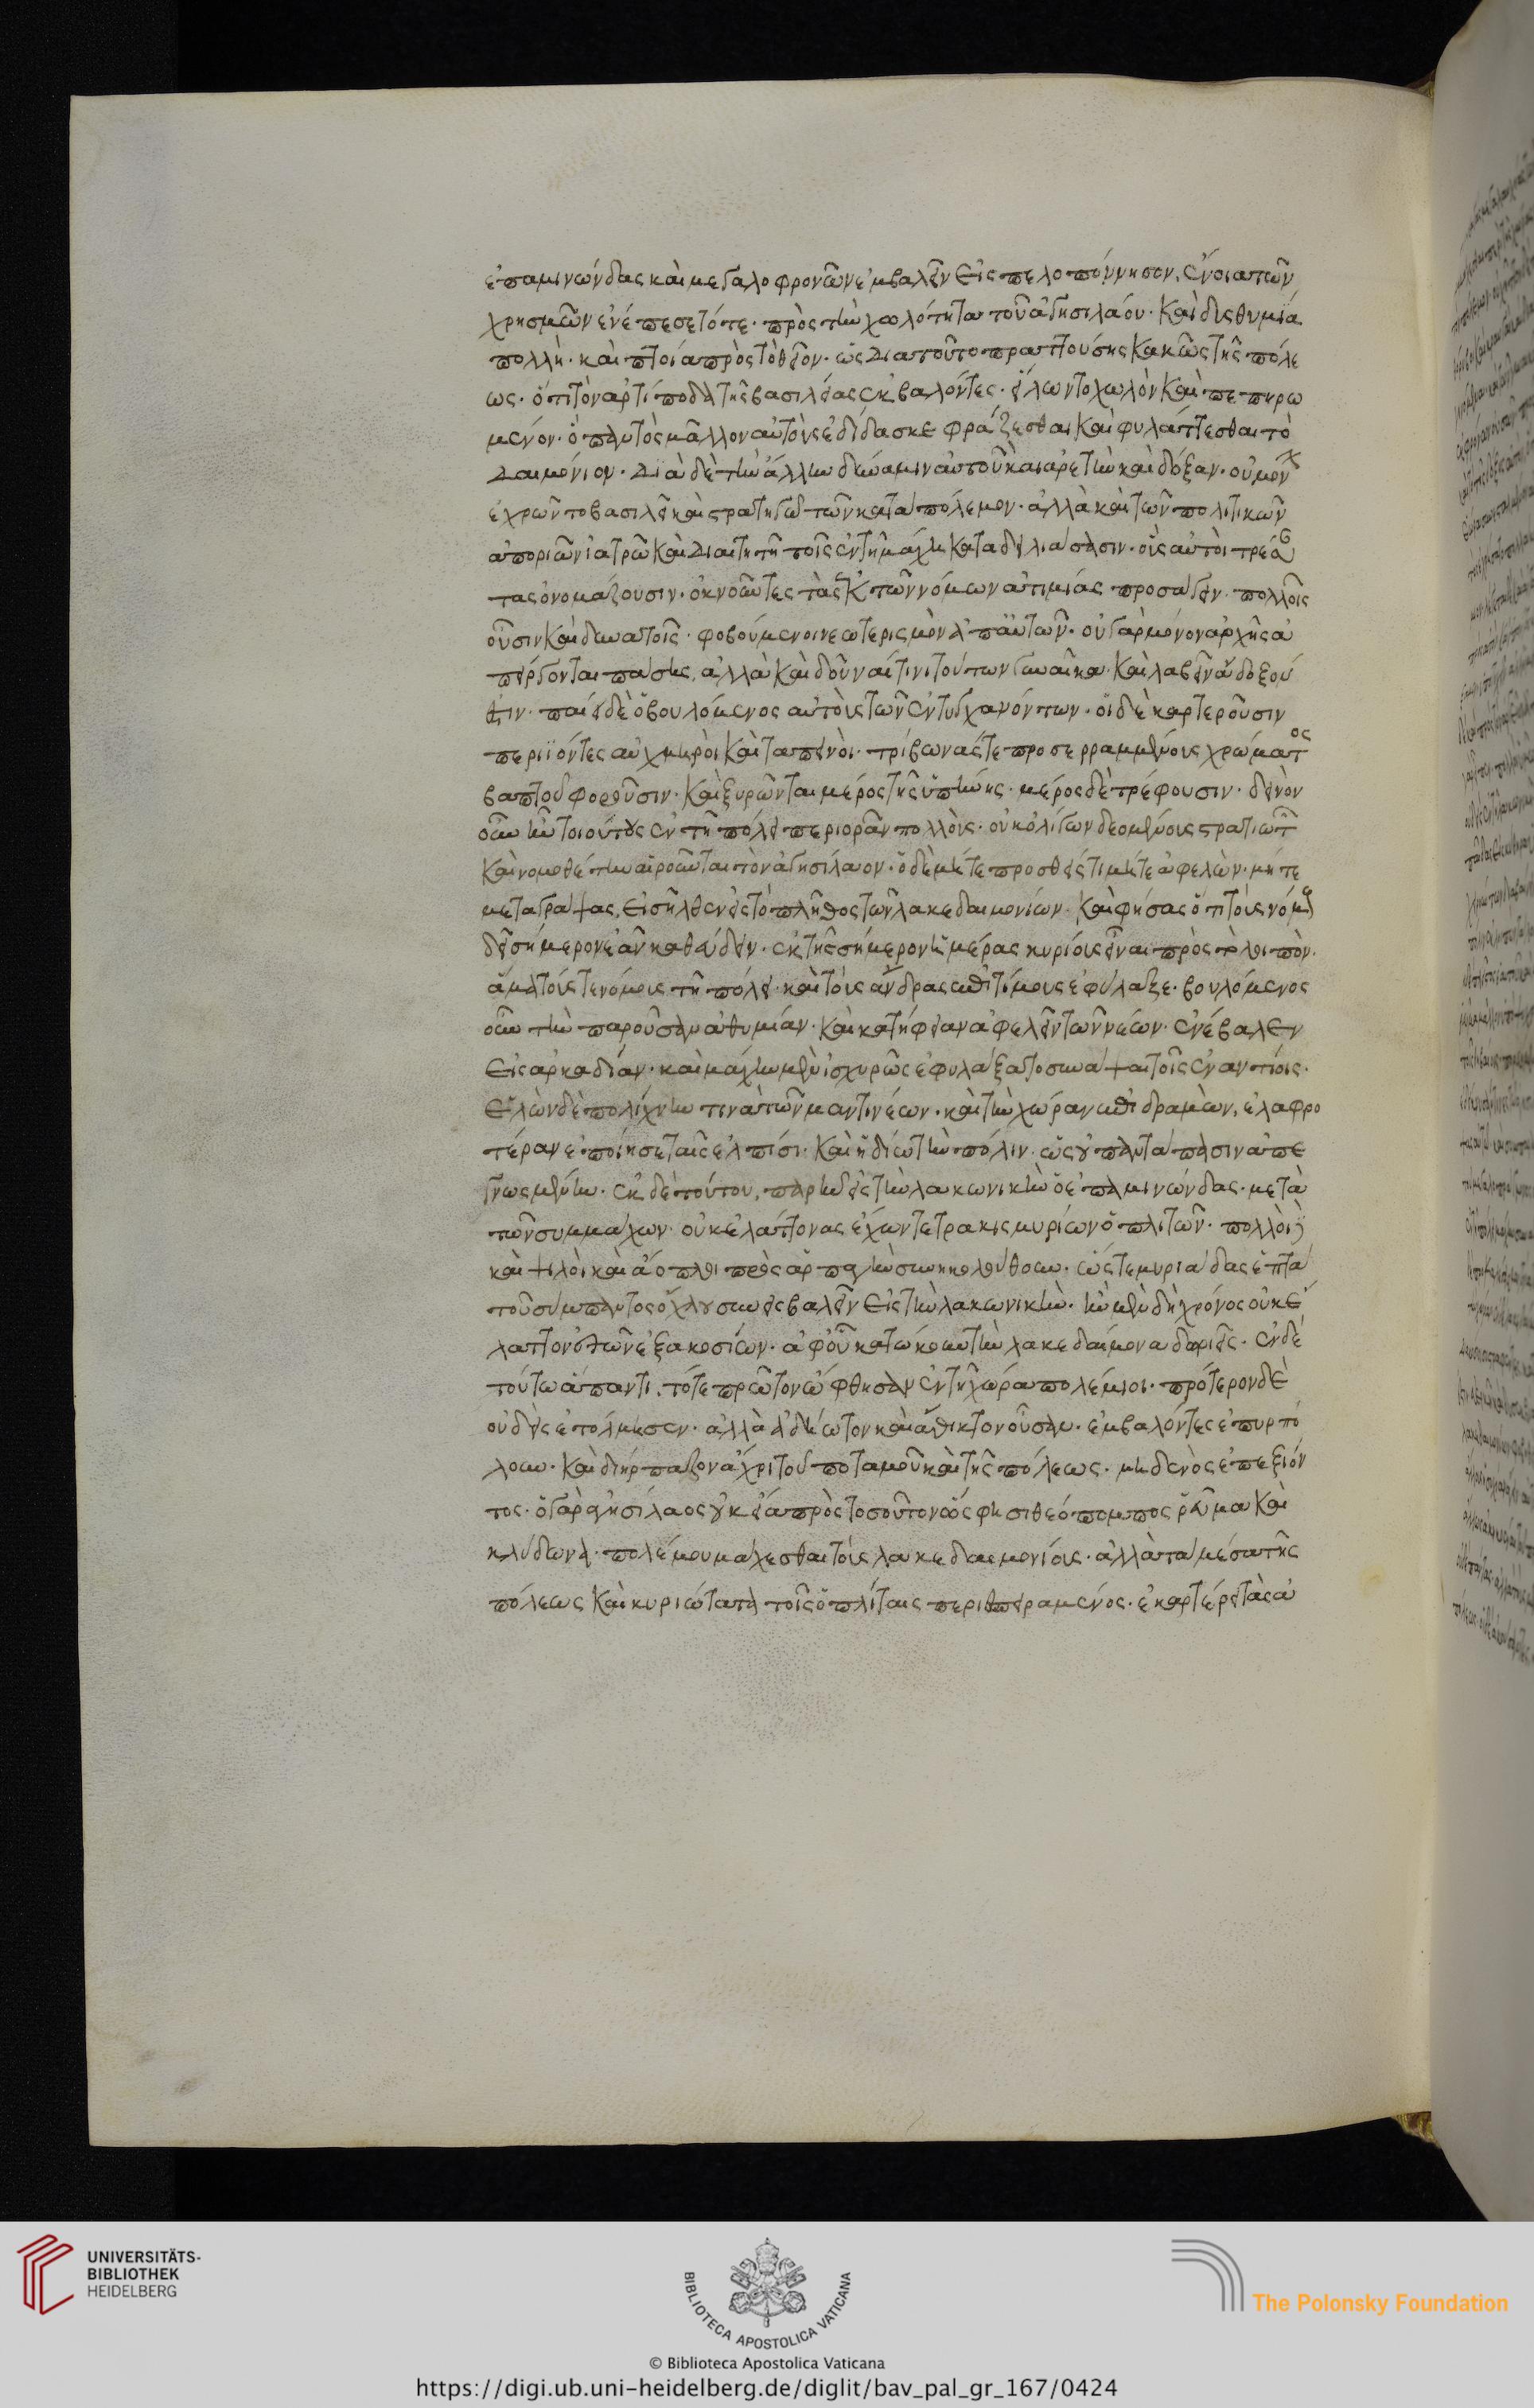 ἐπαμινώνδας καὶ μεγαλοφρονῶν ἐμβαλεῖν εἰς πελοπόννησον, ἔννοια τῶν
χρησμῶν ἐνέπεσε τότε· πρὸς τὴν χωλότητα τοῦ ἀγησιλάου· καὶ δυσθυμία
πολλὴ· καὶ πτοία πρὸς τὸ θεῖον· ὡς διατοῦτο πραττούσης κακῶς τῆς πόλε
ως· ὅτι τὸν ἀρτίποδα τῆς βασιλείας ἐκβαλόντες· εἵλοντο χωλὸν καὶ πεπηρω
μένον· ὃ παντὸς μᾶλλον αὐτοὺς ἐδίδασκε φράζεσθαι καὶ φυλάττεσθαι τὸ
δαιμόνιον· διὰ δὲ τὴν ἄλλην δύναμιν αὐτοῦ καὶ ἀρετὴν καὶ δόξαν· οὐ μον
ἐχρῶντο βασιλεῖ καὶ στρατηγῶ τῶν κατὰ πόλεμον· ἀλλὰ καὶ τῶν πολιτικῶν
ἀποριῶν ἰατρῶ καὶ διαιτητῆ τοῖς ἐν τῆ μάχη καταδειλιάσασιν· οὓς αὐτοὶ τρέσ
τας ὀνομάζουσιν· ὀκνοῦντες τὰς ἐκ τῶν νόμων ἀτιμίας προσάγειν· πολλοῖς
οὖσιν καὶ δυνατοῖς· φοβούμενοι νεωτερισμὸν ἀπ' αὐτῶν· οὐ γὰρ μόνον ἀρχῆς ἀ
πείργονται πάσης, ἀλλὰ καὶ δοῦναί τινι τούτων γυναῖκα· καὶ λαβεῖν ἄδοξού
ἐστιν· παίει δὲ ὁ βουλόμενος αὐτοὺς τῶν ἐντυγχανόντων· οἱ δὲ καρτεροῦσιν
περιϊόντες αὐχμηροὶ καὶ ταπεινοὶ· τρίβωνάς τε προσερραμμένους χρώματος
βαπτοῦ φοροῦσιν· καὶ ξυρῶνται μέρος τῆς ὑπήνης· μέρος δὲ τρέφουσιν· δεινὸν
οὖν ἦν τοιούτους ἐν τῆ πόλει περιορᾶν πολλοὺς· οὐκ ὀλίγων δεομένους στρατιωτ
καὶ νομοθέτην αἱροῦνται τὸν ἀγησίλαον· ὁ δὲ μήτε προσθείς τι μήτε ἀφελὼν· μήτε
μεταγράψας, εἰσῆλθεν εἰς τὸ πλῆθος τῶν λακεδαιμονίων· καὶ φήσας ὅτι τοὺς νόμους
δεῖ σήμερον ἐᾶν καθεύδειν· ἐκ τῆς σήμερον ἡμέρας κυρίους εἶναι πρὸς τὸ λοιπὸν·
ἅμα τούς τε νόμους τῆ πόλει καὶ τοὺς ἄνδρας ἐπιτίμους ἐφύλαξε· βουλόμενος
οὖν τὴν παροῦσαν ἀθυμίαν· καὶ κατήφειαν ἀφελεῖν τῶν νέων· ἐνέβαλεν
εἰς ἀρκαδίαν· καὶ μάχην μὲν ἰσχυρῶς ἐφυλάξατο συνάψαι τοῖς ἐναντίοις·
ἑλὼν δὲ πολίχνην τινὰ τῶν μαντινέων· καὶ τὴν χώραν ἐπιδραμὼν, ἐλαφρο
τέραν ἐποίησε ταῖς ἐλπίσι· καὶ ἡδίω τὴν πόλιν· ὡς οὐ παντάπασιν ἀπε
γνωσμένην· ἐκ δὲ τούτου, παρῆν εἰς τὴν λακωνικὴν ὁ ἐπαμινώνδας· μετὰ
τῶν συμμάχων· οὐκ ἐλάττονας ἔχων τετρακισμυρίων ὁπλιτῶν· πολλοὶ δ
καὶ ψιλοὶ καὶ ἄοπλοι πρὸς ἁρπαγὴν συνηκολούθουν· ὥστε μυριάδας ἑπτὰ
τοῦ σύμπαντος ὄχλου συνεισβαλεῖν εἰς τὴν λακωνικὴν· ἦν μὲν δὴ χρόνος οὐκ ἐ
λάττον ἐτῶν ἑξακοσίων· ἀφ' οὗ κατώκουν τὴν λακεδαίμονα δωριεῖς· ἐν δὲ
τούτω ἅπαντι, τότε πρῶτον ὤφθησαν ἐν τῆ χώρα πολέμιοι· πρότερον δὲ
οὐδεὶς ἐτόλμησεν· ἀλλὰ ἀδήωτον καὶ ἄθικτον οὖσαν· ἐμβαλόντες ἐπυρπό
λουν· καὶ διήρπαζον ἄχρι τοῦ ποταμοῦ καὶ τῆς πόλεως· μηδενὸς ἐπεξιόν
τος· ὁ γὰρ ἀγησίλαος οὐκ εἴα πρὸς τοσοῦτον ὥς φησι θεόπομπος ῥεῦμα καὶ
κλύδωνα· πολέμου μάχεσθαι τοὺς λακεδαιμονίους· ἀλλὰ τὰ μέσα τῆς
πόλεως καὶ κυριώτατα τοῖς ὁπλίταις περιεσπειραμένος· ἐκαρτέρει τὰς ἀ
UNIVERSITÄTS-
BIBLIOTHEK
HEIDELBERG
BIBLIOTECA APOSTOLICA VATICANA
The Polonsky Foundation
© Biblioteca Apostolica Vaticana
https://digi.ub.uni-heidelberg.de/diglit/bav_pal_gr_167/0424